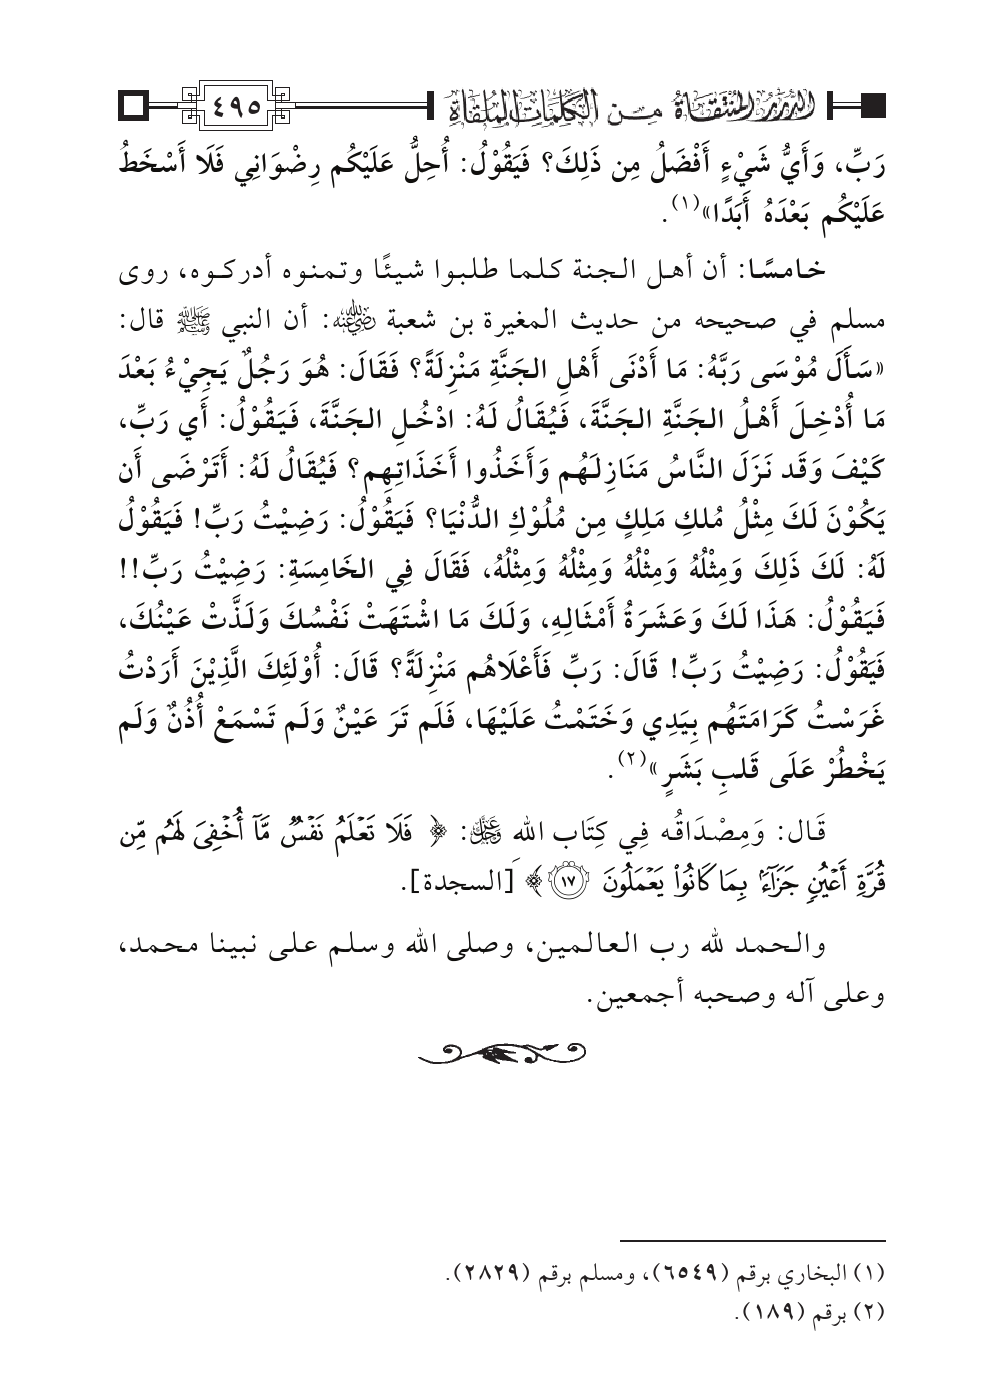 الدرر المنتقاة من الكلمات الملقاة ٤٩٥
رَبِّ، وَأَيُّ شَيْءٍ أَفْضَلُ مِن ذَلِكَ؟ فَيَقُوْلُ: أُحِلُّ عَلَيْكُم رِضْوَانِي فَلَا أَسْخَطُ
عَلَيْكُم بَعْدَهُ أَبَدًا»(١).
خامسًا: أن أهل الجنة كلما طلبوا شيئًا وتمنوه أدركوه، روى
مسلم في صحيحه من حديث المغيرة بن شعبة رضي الله عنه: أن النبي ﷺ قال:
«سَأَلَ مُوْسَى رَبَّهُ: مَا أَدْنَى أَهْلِ الجَنَّةِ مَنْزِلَةً؟ فَقَالَ: هُوَ رَجُلٌ يَجِيْءُ بَعْدَ
مَا أُدْخِلَ أَهْلُ الجَنَّةِ الجَنَّةَ، فَيُقَالُ لَهُ: ادْخُلِ الجَنَّةَ، فَيَقُوْلُ: أَي رَبِّ،
كَيْفَ وَقَد نَزَلَ النَّاسُ مَنَازِلَهُم وَأَخَذُوا أَخَذَاتِهِم؟ فَيُقَالُ لَهُ: أَتَرْضَى أَن
يَكُوْنَ لَكَ مِثْلُ مُلكِ مَلِكٍ مِن مُلُوْكِ الدُّنْيَا؟ فَيَقُوْلُ: رَضِيْتُ رَبِّ! فَيَقُوْلُ
لَهُ: لَكَ ذَلِكَ وَمِثْلُهُ وَمِثْلُهُ وَمِثْلُهُ وَمِثْلُهُ، فَقَالَ فِي الخَامِسَةِ: رَضِيْتُ رَبِّ!!
فَيَقُوْلُ: هَذَا لَكَ وَعَشَرَةُ أَمْثَالِهِ، وَلَكَ مَا اشْتَهَتْ نَفْسُكَ وَلَذَّتْ عَيْنُكَ،
فَيَقُوْلُ: رَضِيْتُ رَبِّ! قَالَ: رَبِّ فَأَعْلَاهُم مَنْزِلَةً؟ قَالَ: أُوْلَئِكَ الَّذِيْنَ أَرَدْتُ
غَرَسْتُ كَرَامَتَهُم بِيَدِي وَخَتَمْتُ عَلَيْهَا، فَلَم تَرَ عَيْنٌ وَلَم تَسْمَعْ أُذُنٌ وَلَم
يَخْطُرْ عَلَى قَلبِ بَشَرٍ»(٢).
قَال: وَمِصْدَاقُه فِي كِتَاب اللهِ عز وجل: ﴿ فَلَا تَعْلَمُ نَفْسٌ مَّآ أُخْفِىَ لَهُم مِّن
قُرَّةِ أَعْيُنٍ جَزَآءًۢ بِمَا كَانُوا۟ يَعْمَلُونَ ١٧ ﴾ [السجدة].
والحمد لله رب العالمين، وصلى الله وسلم على نبينا محمد،
وعلى آله وصحبه أجمعين.
(١) البخاري برقم (٦٥٤٩)، ومسلم برقم (٢٨٢٩).
(٢) برقم (١٨٩).